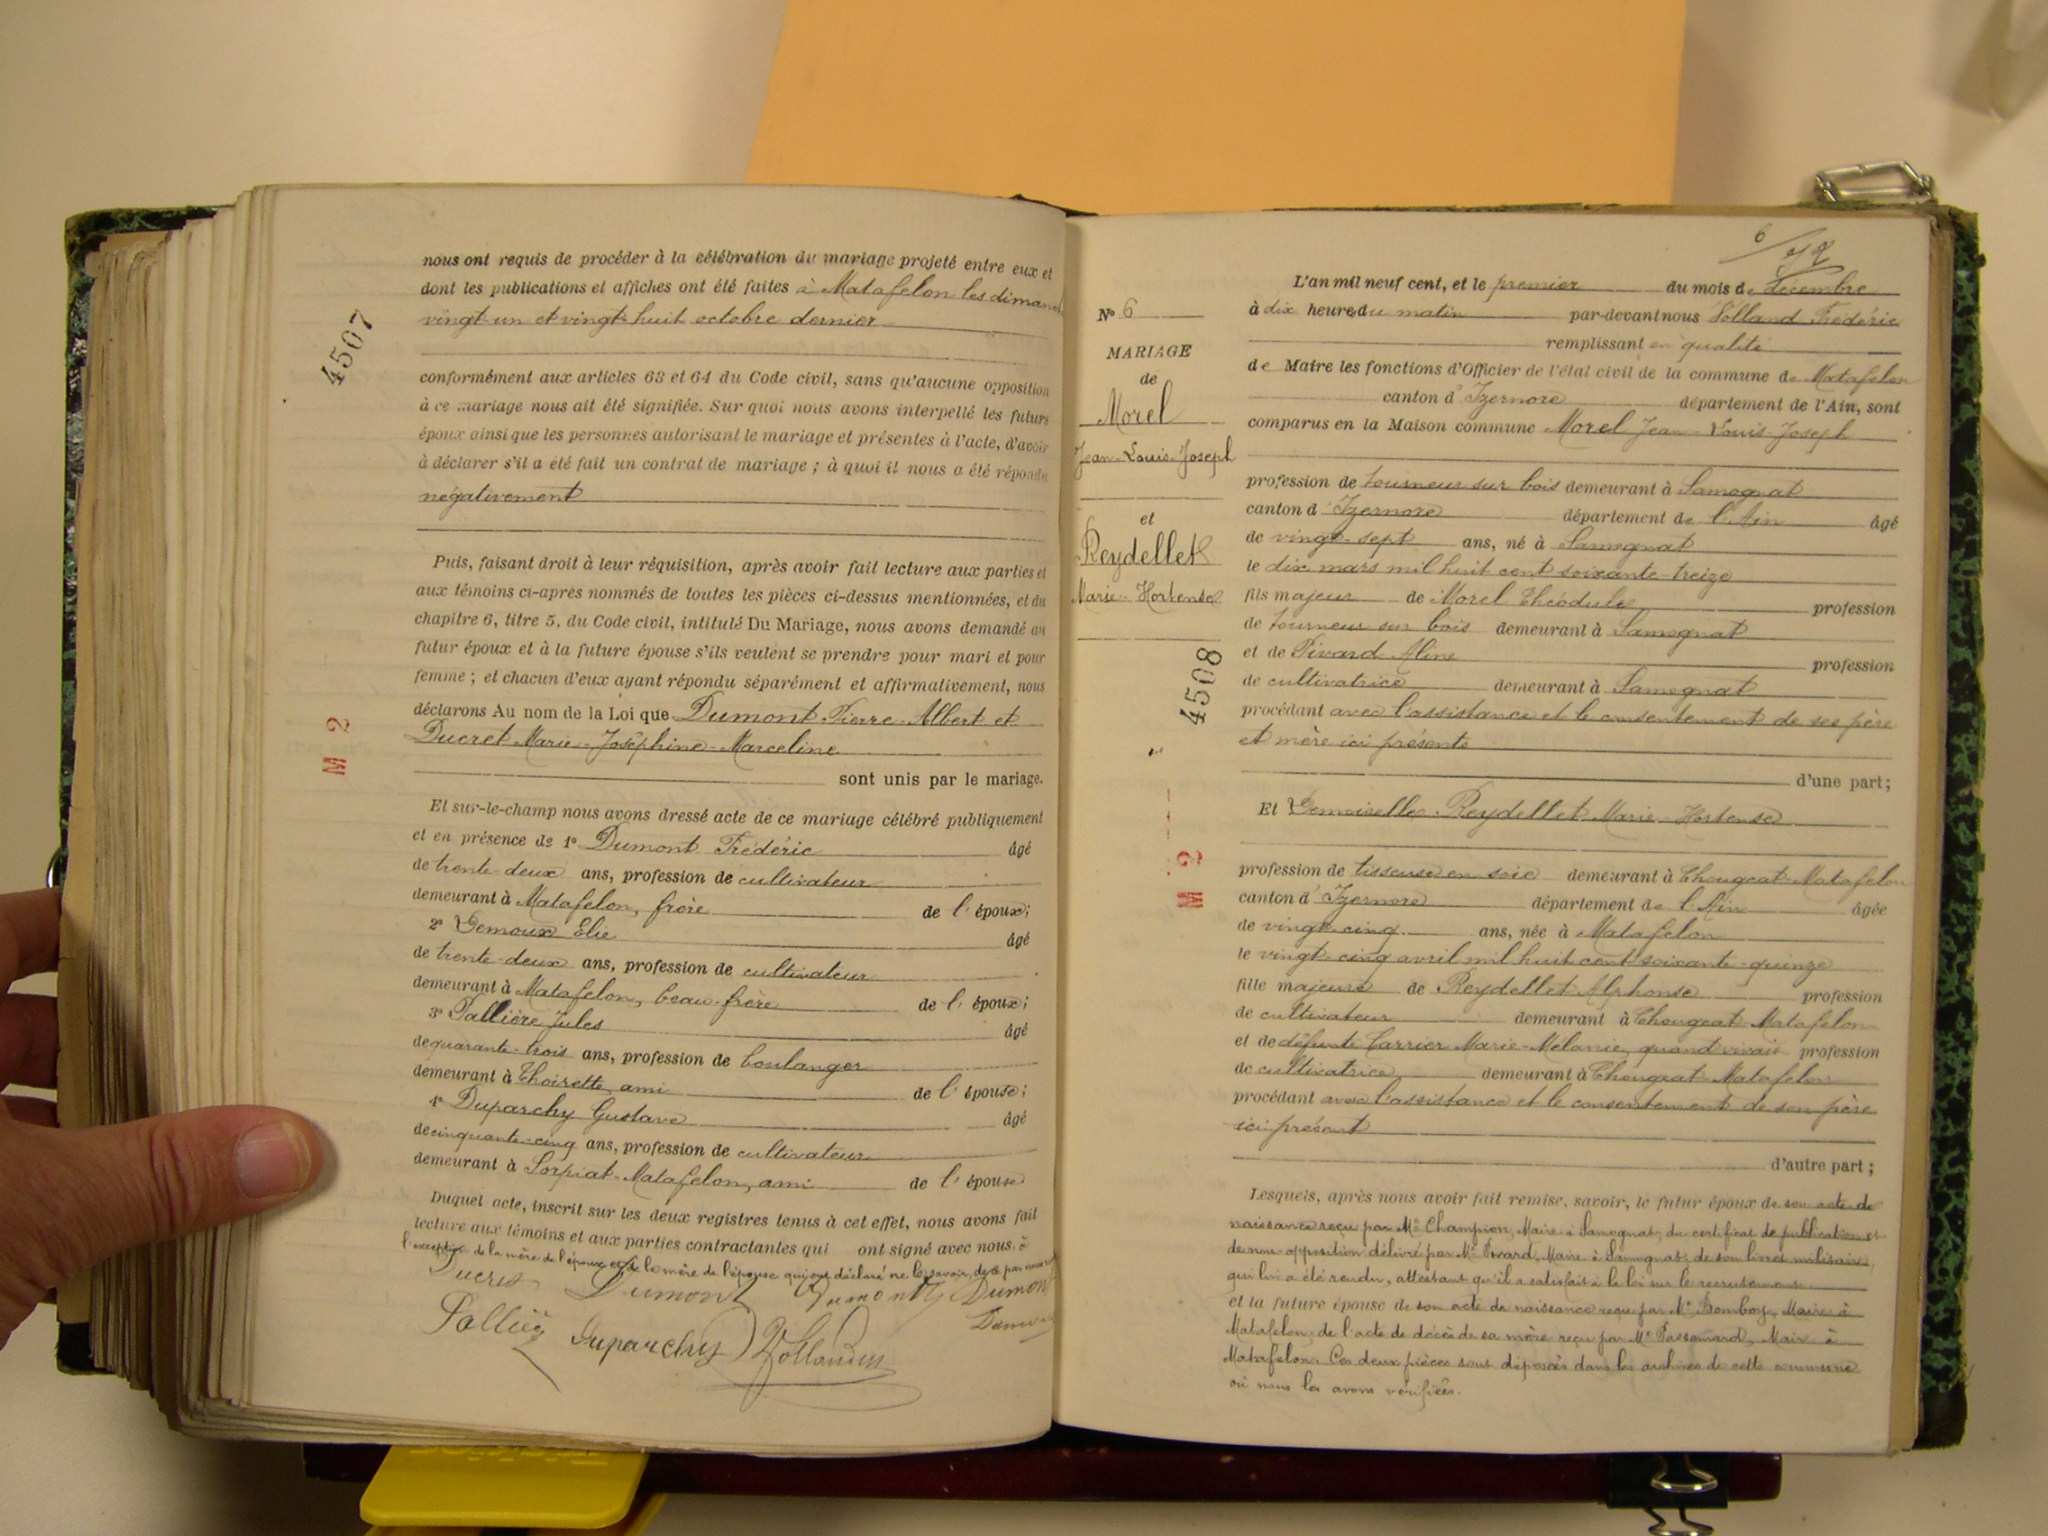 nous ont requis de procéder à la célébration du mariage projeté entre eux et
dont les publications et affiches ont été faites à Matafelon les dimanch
vingt-un et vingt-huit octobre dernier
4507
conformément aux articles 63 et 64 du Code civil, sans qu'aucune opposition
à ce mariage nous ait été signifiée. Sur quoi nous avons interpellé les futurs
époux ainsi que les personnes autorisant le mariage et présentes à l'acte, d'avoir
à déclarer s'il a été fait un contrat de mariage ; à quoi il nous a été répondu
négativement
Puis, faisant droit à leur réquisition, après avoir fait lecture aux parties et
aux témoins ci-après nommés de toutes les pièces ci-dessus mentionnées, et du
chapitre 6, titre 5, du Code civil, intitulé Du Mariage, nous avons demandé au
futur époux et à la future épouse s'ils veulent se prendre pour mari et pour
femme ; et chacun d'eux ayant répondu séparément et affirmativement, nous
déclarons Au nom de la Loi que Dumont Pierre-Albert et
Ducret Marie-Joséphine-Marceline
M 2
sont unis par le mariage.
Et sur-le-champ nous avons dressé acte de ce mariage célébré publiquement
et en présence de 1° Dumont Frédéric âgé
de trente-deux ans, profession de cultivateur
demeurant à Matafelon, frère de l'époux;
2° Gemoux Élie âgé
de trente-deux ans, profession de cultivateur
demeurant à Matafelon, beau-frère de l'époux;
3° Pallière Jules âgé
de quarante-trois ans, profession de boulanger
demeurant à Thoirette, ami de l'épouse;
4° Duparchy Gustave âgé
de cinquante-cinq ans, profession de cultivateur
demeurant à Sorpiat-Matafelon, ami de l'épouse
Duquel acte, inscrit sur les deux registres tenus à cet effet, nous avons fait
lecture aux témoins et aux parties contractantes qui ont signé avec nous à
l'exception de la mère de l'époux et de la mère de l'épouse qui ont déclaré ne le savoir, de ce par nous
Ducret Dumont Dumont Dumont
Pallière Duparchy Vollandy
6
N° 6
MARIAGE
de
Morel
Jean-Louis-Joseph
et
Reydellet
Marie-Hortense
4508
M 2
L'an mil neuf cent, et le premier du mois de Décembre
à dix heures du matin par-devant nous Volland Frédéric
remplissant en qualité
de Maire les fonctions d'Officier de l'état civil de la commune de Matafelon
canton d'Izernore département de l'Ain, sont
comparus en la Maison commune Morel Jean-Louis-Joseph
profession de tourneur sur bois demeurant à Samognat
canton d'Izernore département de l'Ain âgé
de vingt-sept ans, né à Samognat
le dix mars mil huit cent soixante-treize
fils majeur de Morel Théodule profession
de tourneur sur bois demeurant à Samognat
et de Pivard Aline profession
de cultivatrice demeurant à Samognat
procédant avec l'assistance et le consentement de ses père
et mère ici présents
d'une part;
Et Demoiselle Reydellet Marie-Hortense
profession de tisseuse en soie demeurant à Chougeat-Matafelon
canton d'Izernore département de l'Ain âgée
de vingt-cinq ans, née à Matafelon
le vingt-cinq avril mil huit cent soixante-quinze
fille majeure de Reydellet Alphonse profession
de cultivateur demeurant à Chougeat-Matafelon
et de défunte Carrier Marie-Mélanie, quand vivait profession
de cultivatrice demeurant à Chougeat-Matafelon
procédant avec l'assistance et le consentement de son père
ici présent
d'autre part ;
Lesquels, après nous avoir fait remise, savoir, le futur époux de son acte de
naissance reçu par Mr Champion, Maire à Samognat, du certificat de publication et
de non opposition délivré par Mr Pivard, Maire à Samognat, de son livret militaire,
qui lui a été rendu, attestant qu'il a satisfait à la loi sur le recrutement
et la future épouse de son acte de naissance reçu par Mr Bomboy, Maire à
Matafelon, de l'acte de décès de sa mère reçu par Mr Passemard, Maire à
Matafelon. Ces deux pièces sont déposées dans les archives de cette commune
où nous les avons vérifiées.